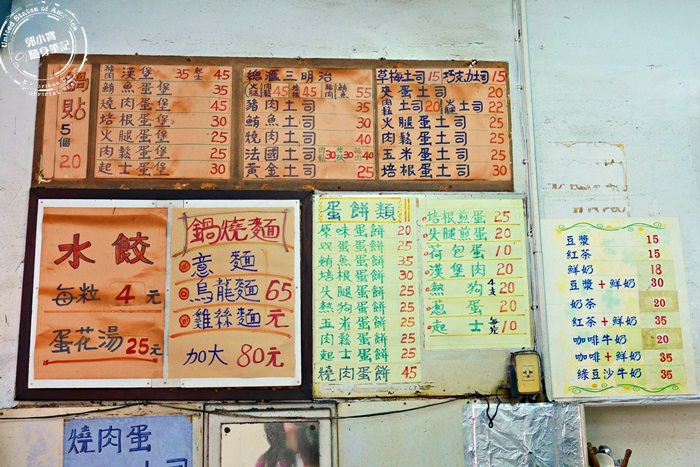 United States of America
郭小寶
隨身筆記
official
鍋貼
5個
20
漢堡 35 45
鮪魚蛋堡 35
燒肉蛋堡 45
培根蛋堡 30
火腿蛋堡 25
肉鬆蛋堡 25
起士蛋堡 30
總滙三明治
45 45 55
豬肉土司 35
鮪魚土司 30
燒肉土司 40
法國土司 30 40
黃金土司 25
草莓土司 15 巧克力土司 15
夾蛋土司 20
土司 20 土司 22
火腿蛋土司 25
肉鬆蛋土司 25
玉米蛋土司 25
培根蛋土司 30
水餃
每粒 4 元
蛋花湯 25元
鍋燒麵
意麵
烏龍麵 65
雞絲麵 元
加大 80元
蛋餅類
原味蛋餅 20
蛋餅 25
鮪魚蛋餅 35
培根蛋餅 30
火腿蛋餅 25
熱狗蛋餅 25
玉米蛋餅 25
肉鬆蛋餅 25
起士蛋餅 25
燒肉蛋餅 45
培根煎蛋 25
火腿煎蛋 20
荷包蛋 10
漢堡肉 20
熱狗 4支 20
蔥蛋 20
起士 10
豆漿 15
紅茶 15
鮮奶 18
豆漿+鮮奶 30
奶茶 20
紅茶+鮮奶 35
咖啡牛奶 20
咖啡+鮮奶 35
綠豆沙牛奶 35
燒肉蛋